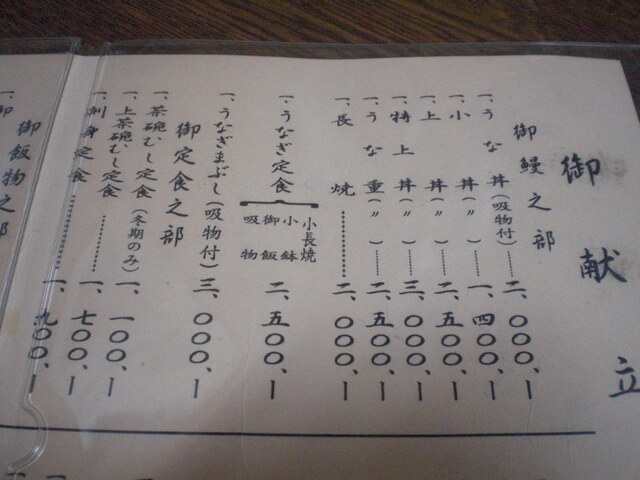 御献立
御鰻之部
一、うな丼(吸物付)……二、〇〇〇、ー
一、小丼(〃)……一、四〇〇、ー
一、上丼(〃)……二、五〇〇、ー
一、特上丼(〃)……三、〇〇〇、ー
一、うな重(〃)……二、五〇〇、ー
一、長焼…………二、〇〇〇、ー
一、うなぎ定食
小長焼
小鉢
御飯
吸物
二、五〇〇、ー
一、うなぎまぶし(吸物付)三、〇〇〇、ー
御定食之部
一、茶碗むし定食(冬期のみ)一、一〇〇、ー
一、上茶碗むし定食…………一、七〇〇、ー
一、刺身定食…………一、九〇〇、ー
御飯物之部
一、御